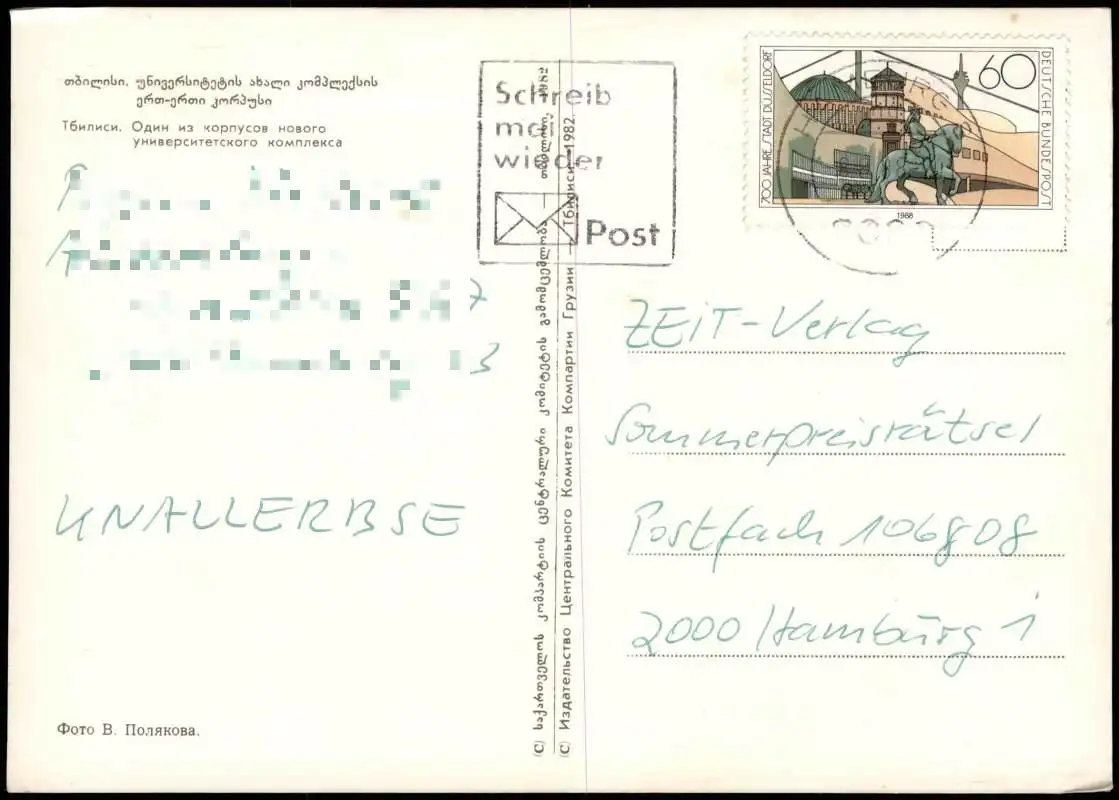 თბილისი. უნივერსიტეტის ახალი კომპლექსის
ერთ-ერთი კორპუსი
Тбилиси. Один из корпусов нового
университетского комплекса
KNALLERBSE
Фото В. Полякова.
(C) საქართველოს კომპარტიის ცენტრალური კომიტეტის გამომცემლობა — თბილისი, 1982
(C) Издательство Центрального Комитета Компартии Грузии — Тбилиси — 1982
Schreib
mal
wieder
Post
700 JAHRE STADT DÜSSELDORF
60
DEUTSCHE BUNDESPOST
1988
ZEIT-Verlag
Sommerpreisrätsel
Postfach 106808
2000 Hamburg 1